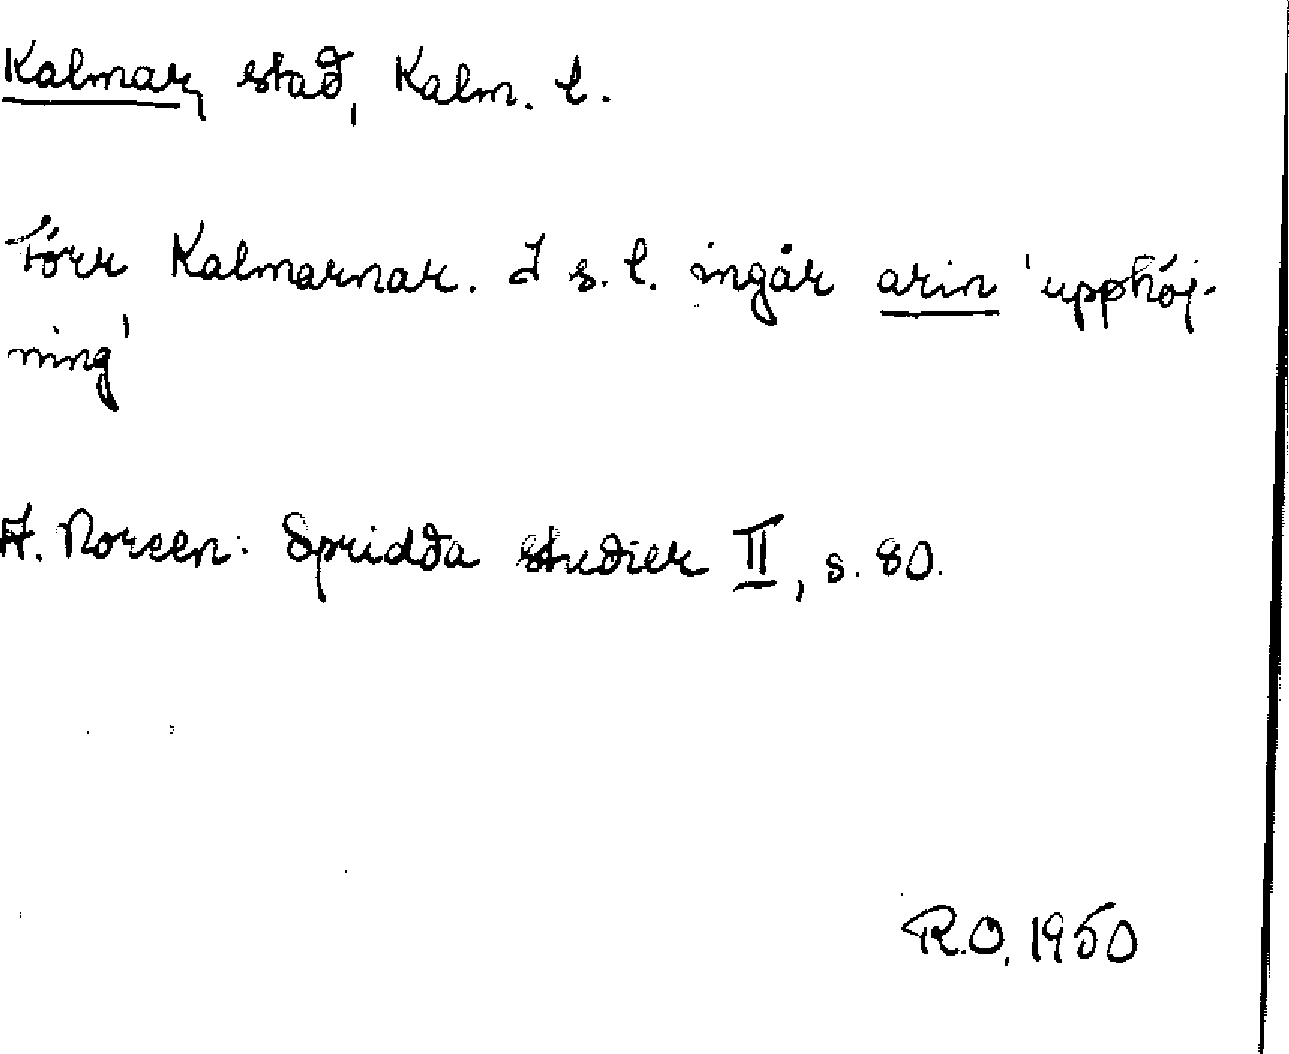 Kalmar, stad, Kalm. l.
Förr Kalmarnar. I s. l. ingår arin 'upphöj-
ning'
A. Noreen: Spridda studier II, s. 80.
R.O. 1950